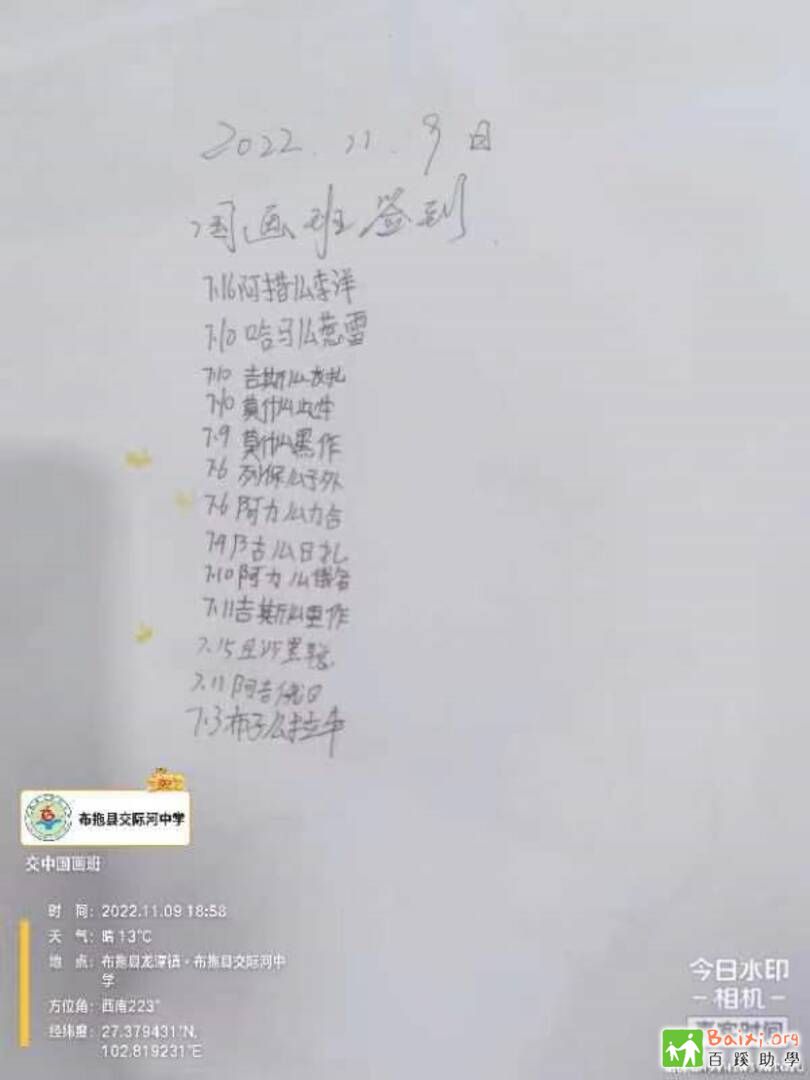 2022.11.9日
国画班签到
7.16阿措么李洋
7.10哈马么慧雪
7.10 吉斯么衣扎
7.10 莫什么
7.9 莫什么黑作
7.6 列保么子外
7.6 阿力么力合
7.9 吉么日扎
7.10 阿力么
7.11吉斯么里作
7.15
7.11阿吉俄日
7.3布子么拉牛
布拖县交际河中学
交中国画班
时 间：2022.11.09 18:58
天 气：晴 13℃
地 点：布拖县龙潭镇·布拖县交际河中
学
方位角：西南223°
经纬度：27.379431°N,
102.819231°E
今日水印
-相机-
真实时间
Baixi.org
百蹊助學